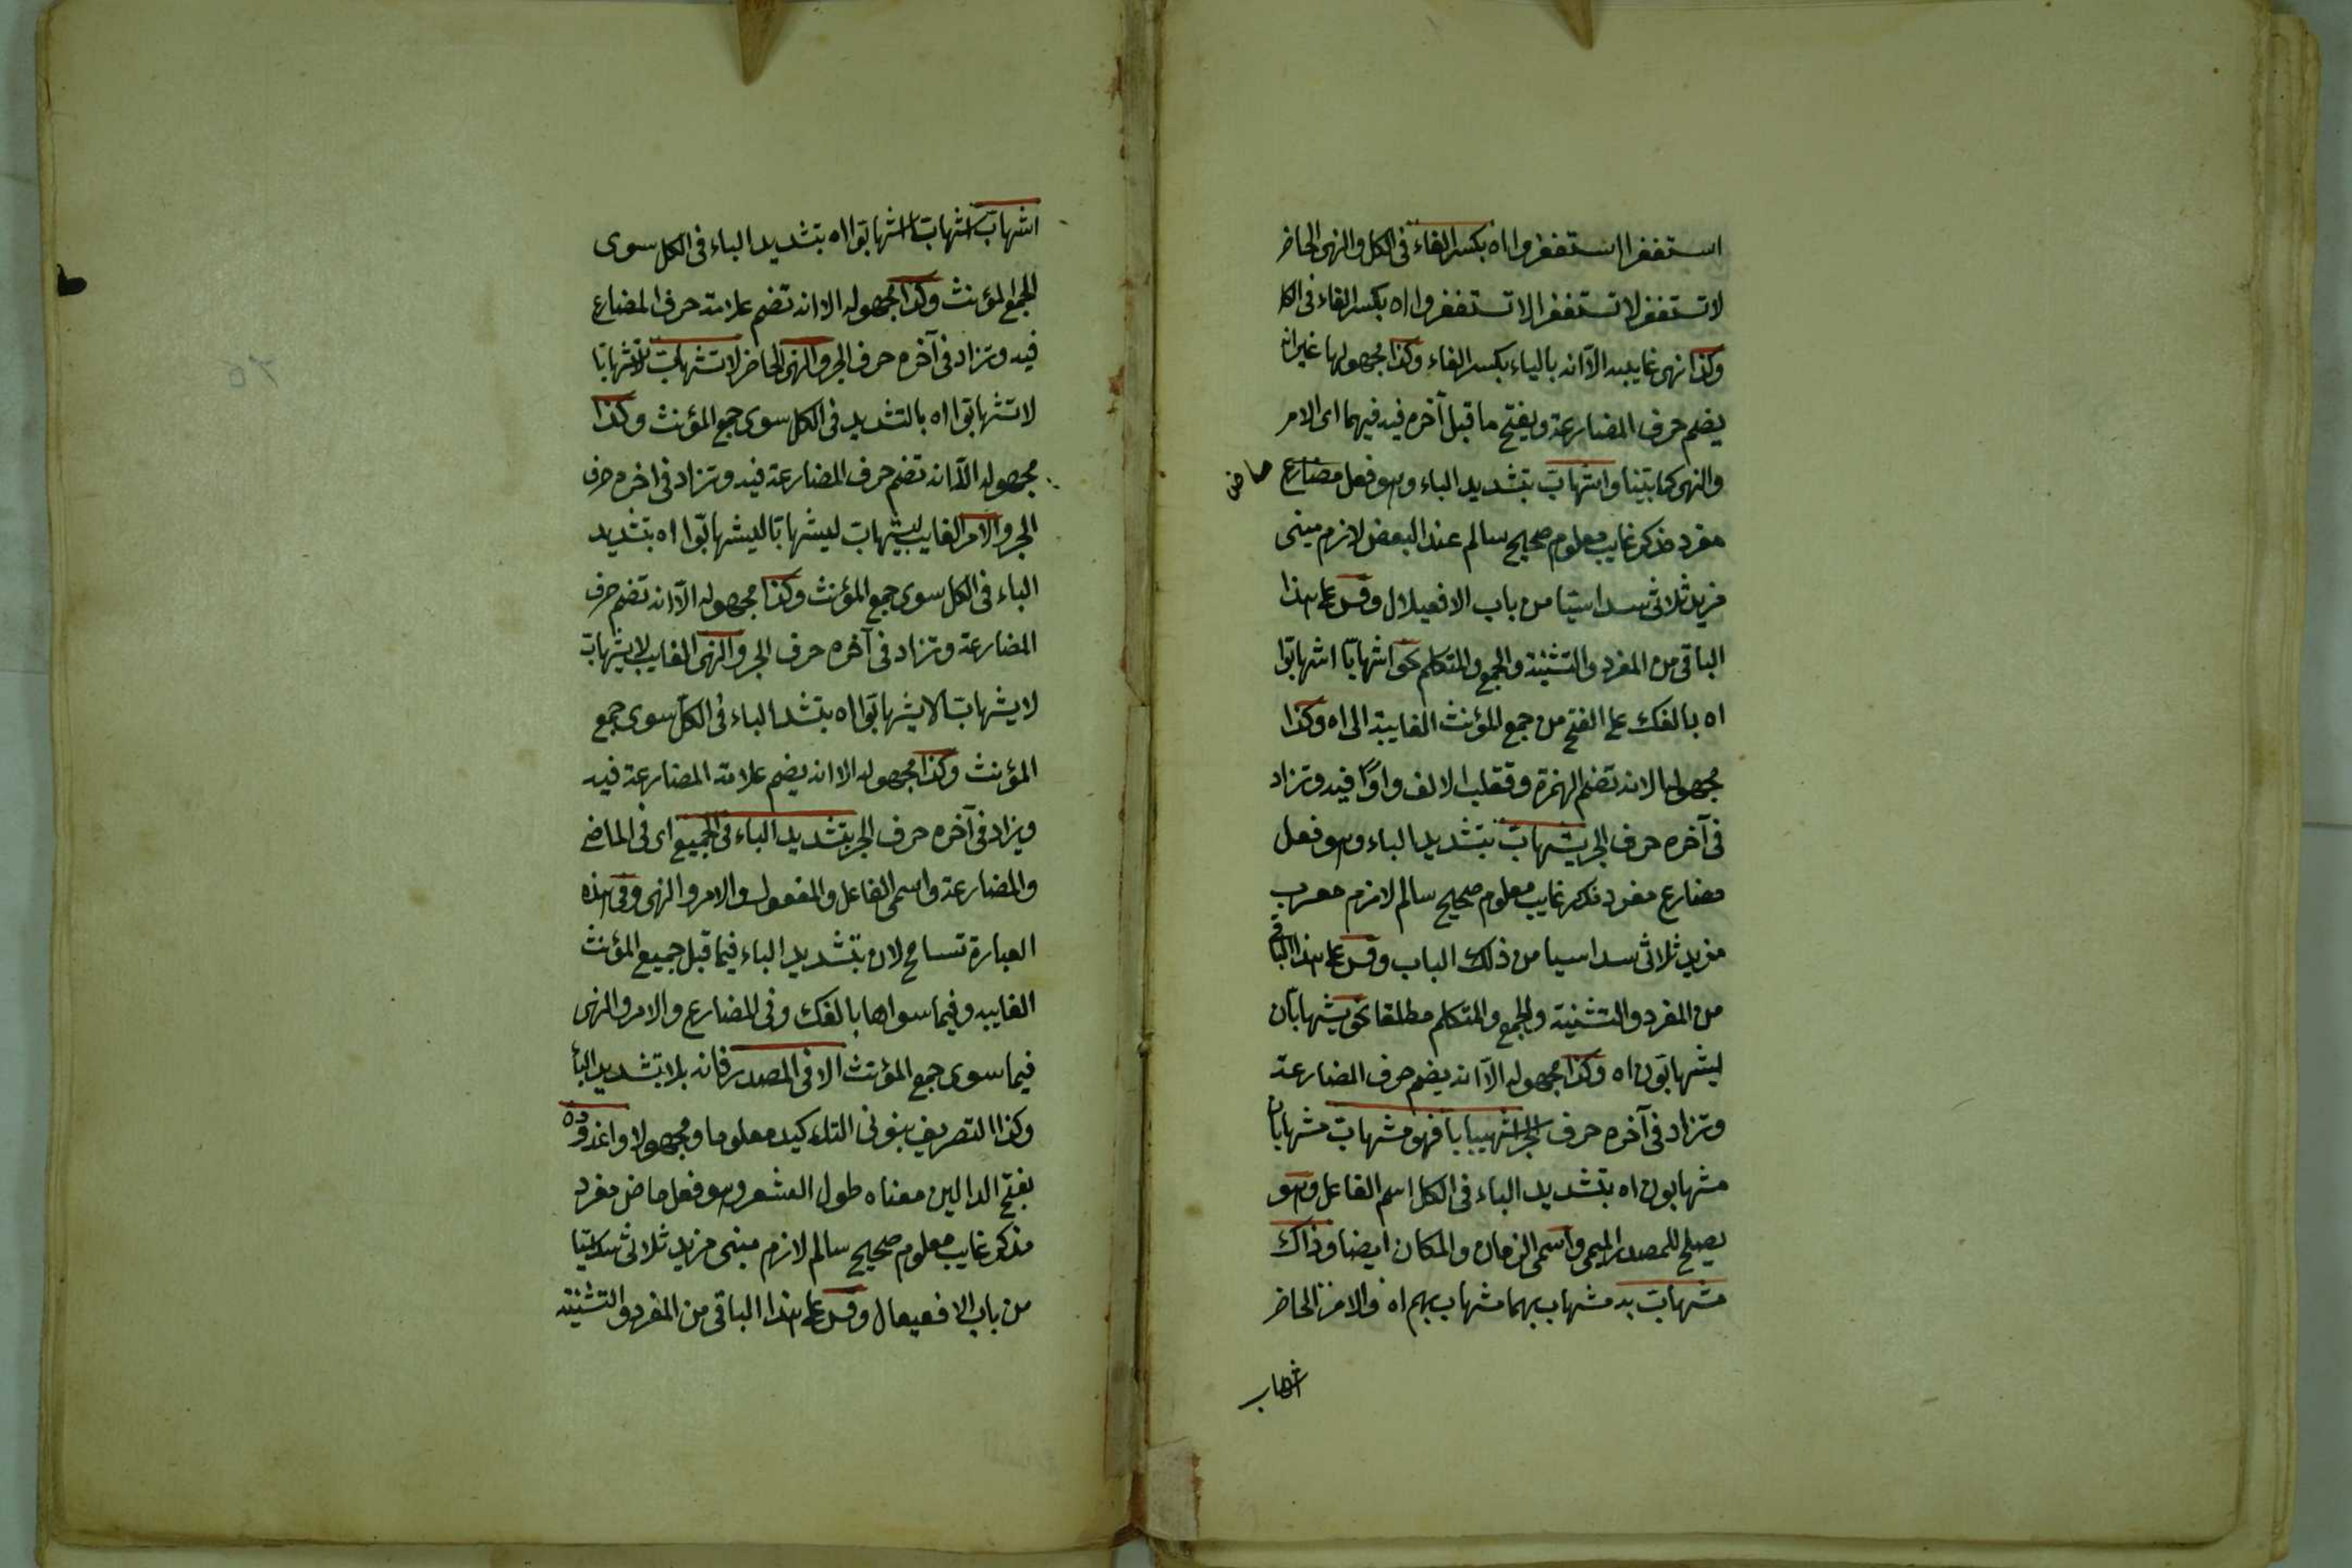 استغفرا استغفروا اه بكسر الفاء فى الكل والنهى الحاضر
لا تستغفر لا تستغفرا لا تستغفروا اه بكسر الفاء فى الكل
وكذا نهى غايبه الا انه بالياء بكسر الفاء وكذا مجهولها غير انه
يضم حرف المضارعة ويفتح ما قبل آخره فيه فيهما اى الامر
والنهى كما بيّنا واشهابّ بتشديد الباء وهو فعل مضارع ماض
مفرد مذكر غايب معلوم صحيح سالم عند البعض لازم مبنى
مزيد ثلاثى سداسيّا من باب الافعيلال وقس على هذا
الباقى من المفرد والتثنية والجمع والمتكلم نحو اشهابّا اشهابّوا
اه بالفك على الفتح من جمع المؤنث الغايبة الى اه وكذا
مجهولها الا انه تضم الهمزة وتقلب الالف واوًا فيه وتزاد
فى آخره حرف الجر يشهابّ بتشديد الباء وهو فعل
مضارع مفرد مذكر غايب معلوم صحيح سالم لازم معرب
مزيد ثلاثى سداسيا من ذلك الباب وقس على هذا الباقى
من المفرد والتثنية والجمع والمتكلم مطلقا نحو يشهابّان
يشهابّون اه وكذا مجهوله الا انه يضم حرف المضارعة
وتزاد فى آخره حرف الجر اشهيبابا فهو مشهابّ مشهابّان
مشهابون اه بتشديد الباء فى الكل اسم الفاعل وهو
يصلح للمصدر الميمى واسمى الزمان والمكان ايضا وذاك
مشهابّ به مشهاب بهما مشهاب بهم اه والامر الحاضر
اشهاب
اشهابّ اشهابّا اشهابّوا اه بتشديد الباء فى الكل سوى
الجمع المؤنث وكذا مجهوله الا انه تضم علامة حرف المضارع
فيه وتزاد فى آخره حرف الجر والنهى الحاضر لا تشهابّ لا تشهابّا
لا تشهابّوا اه بالتشديد فى الكل سوى جمع المؤنث وكذا
مجهوله الا انه تضم حرف المضارعة فيه وتزاد فى اخره حرف
الجر والامر الغايب ليشهابّ ليشهابّا ليشهابّوا اه بتشديد
الباء فى الكل سوى جمع المؤنث وكذا مجهوله الا انه تضم حرف
المضارعة وتزاد فى آخره حرف الجر والنهى الغايب لا يشهابّ
لا يشهابّا لا يشهابّوا اه بتشد الباء فى الكل سوى جمع
المؤنث وكذا مجهوله الا انه يضم علامة المضارعة فيه
ويزاد فى آخره حرف الجر بتشديد الباء فى الجميع اى فى الماضى
والمضارعة واسمى الفاعل والمفعول والامر والنهى وفى هذه
العبارة تسامح لان بتشديد الباء فيما قبل جميع المؤنث
الغايبه وفيما سواها بالفك وفى المضارع والامر والنهى
فيما سوى جمع المؤنث الا فى المصدر فانه بلا تشديد الباء
وكذا التصريف بنونى التاء كيد معلوما ومجهولا واغدودن
بفتح الدالين معناه طول الشعر وهو فعل ماض مفرد
مذكر غايب معلوم صحيح سالم لازم مبنى مزيد ثلاثى سداسيّا
من باب الافعيعال وقس على هذا الباقى من المفرد والتثنية